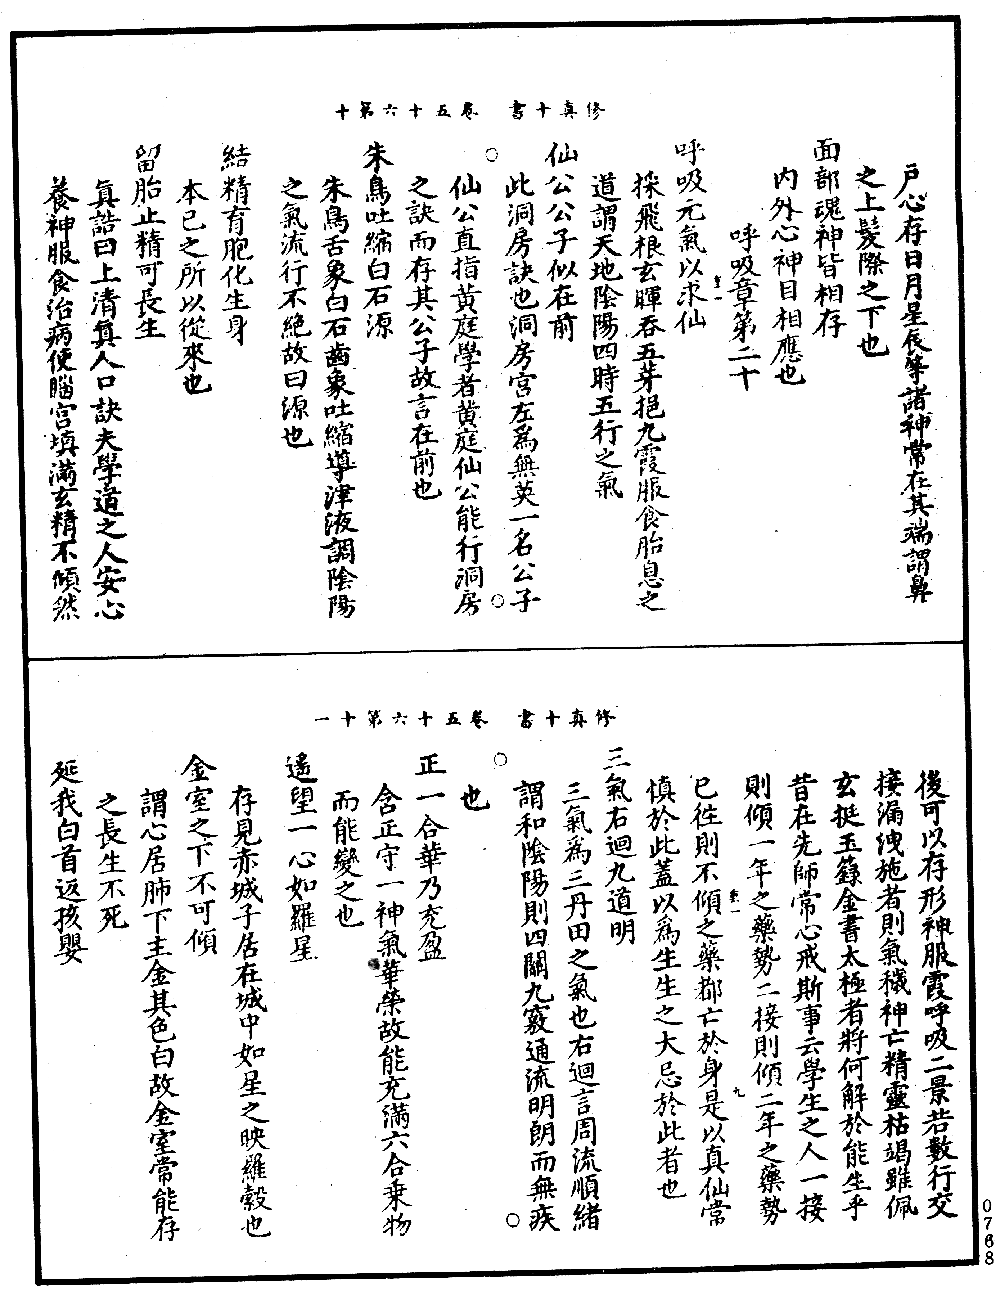 修真十書　卷五十六第十
戶心存日月星辰等諸神常在其端謂鼻
之上髮際之下也
面部魂神皆相存
内外心神目相應也
呼吸章第二十
呼吸元氣以求仙
採飛根玄暉吞五芽挹九霞服食胎息之
道謂天地陰陽四時五行之氣
仙公公子似在前
此洞房訣也洞房宮左爲無英一名公子
仙公直指黃庭學者黃庭仙公能行洞房
之訣而存其公子故言在前也
朱鳥吐縮白石源
朱鳥舌象白石齒象吐縮導津液調陰陽
之氣流行不絶故曰源也
結精育胞化生身
本已之所以從來也
留胎止精可長生
真誥曰上清真人口訣夫學道之人安心
養神服食治病使腦宮填滿玄精不傾然
修真十書　卷五十六第十一
後可以存形神服霞呼吸二景若數行交
接漏洩施者則氣穢神亡精靈枯竭雖佩
玄挺玉籙金書太極者將何解於能生乎
昔在先師常心戒斯事云學生之人一接
則傾一年之藥勢二接則傾二年之藥勢
已往則不傾之藥都亡於身是以真仙常
慎於此蓋以爲生生之大忌於此者也
三氣右迴九道明
三氣爲三丹田之氣也右迴言周流順緒
謂和陰陽則四關九竅通流明朗而無疾
也
正一合華乃充盈
含正守一神氣華榮故能充滿六合乗物
而能變之也
遙望一心如羅星
存見赤城子居在城中如星之映羅縠也
金室之下不可傾
謂心居肺下主金其色白故金室常能存
之長生不死
延我白首返孩嬰
0768